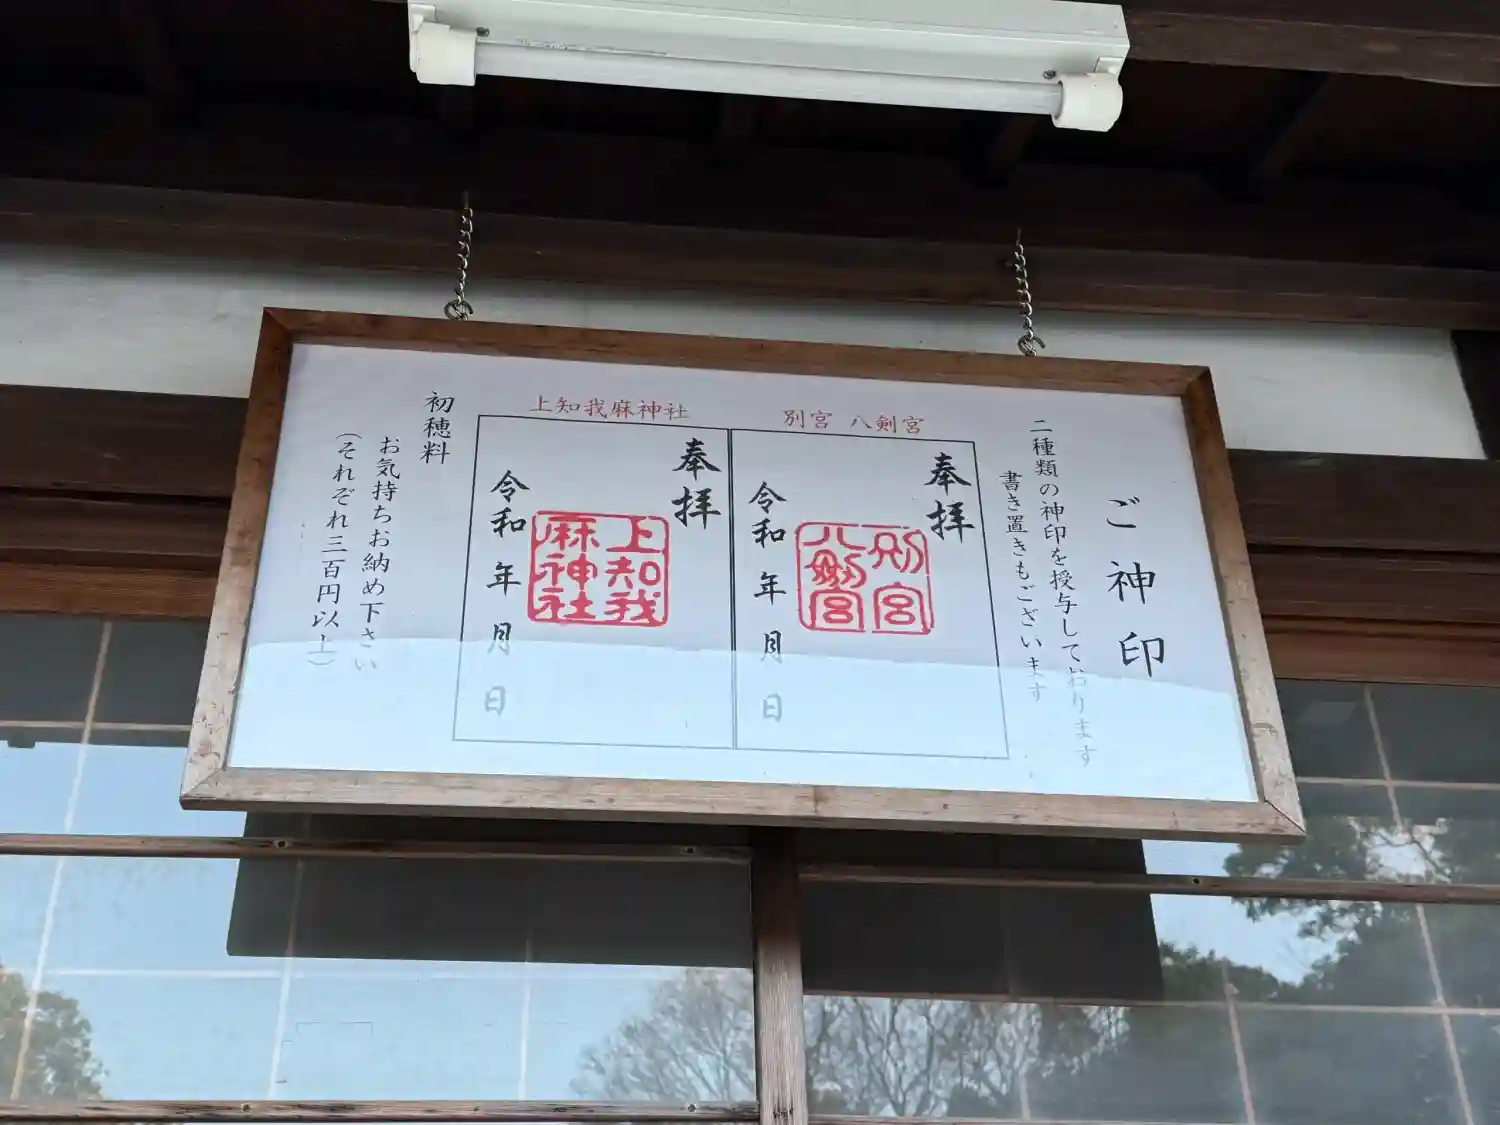 ご神印
二種類の神印を授与しております
書き置きもございます
別宮 八剣宮
奉拝
別宮
八劔宮
令和 年 月 日
上知我麻神社
奉拝
上知我
麻神社
令和 年 月 日
初穂料
お気持ちお納め下さい
(それぞれ三百円以上)